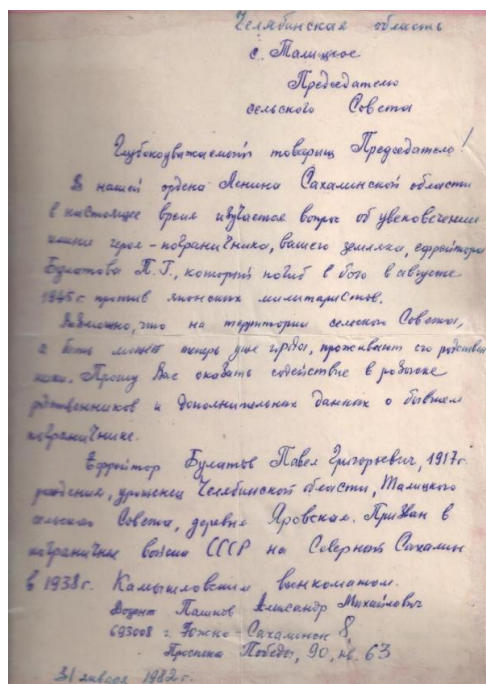 Челябинская область
с. Талицкое
Председателю
сельского Совета
Глубокоуважаемый товарищ Председатель!
В нашей ордена Ленина Сахалинской области
в настоящее время изучается вопрос об увековечении
имени героя-пограничника, вашего земляка, ефрейтора
Булатова П.Г., который погиб в бою в августе
1945 г. против японских милитаристов.
Возможно, что на территории сельского Совета,
а быть может теперь уже города, проживают его родствен
ники. Прошу Вас оказать содействие в розыске
родственников и дополнительных данных о бывшем
пограничнике.
Ефрейтор Булатов Павел Григорьевич, 1917 г.
рождения, уроженец Челябинской области, Талицкого
сельского Совета, деревня Яровская. Призван в
пограничные войска СССР на Северный Сахалин
в 1938 г. Камышловским военкоматом.
Доцент Пашков Александр Михайлович
693008 г. Южно Сахалинск 8,
Проспект Победы, 90, кв. 63
31 января 1982 г.